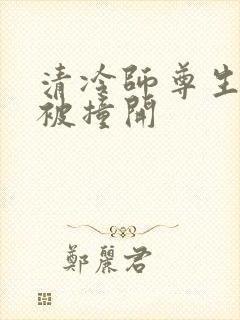 清冷師尊生
被撞開
鄭麗君